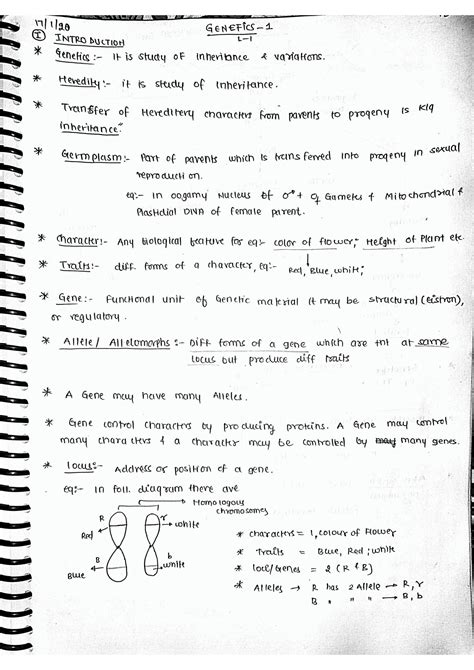 17/1/20
GENETICS-1
L-1
I INTRODUCTION
* Genetics :- It is study of inheritance & variations.
* Heredity :- it is study of Inheritance.
* Transfer of Hereditery characters from parents to progeny is K/q
Inheritance.
* Germplasm :- Part of parents which is transferred into progeny in sexual
reproduction.
eg:- In oogamy Nucleus of ♂ + ♀ Gametes & Mitochondrial &
Plastidial DNA of female parent.
* Character :- Any biological feature for eg:- color of flower, Height of Plant etc.
* Traits :- diff. forms of a character, eg:- Red, Blue, white;
* Gene :- Functional unit of Genetic material it may be structural (Cistron),
or regulatory.
* Allele / Allelomorphs :- Diff forms of a gene which are at same
locus but produce diff traits
* A Gene may have many Alleles.
* Gene control characters by producing proteins. A Gene may control
many characters & a character may be controlled by many genes.
* locus :- Address or position of a gene.
eg:- In foll. diagram there are
Homologous
chromosomes
R
r
Red
white
B
b
Blue
white
* characters = 1, colour of Flower
* Traits = Blue, Red, white
* loci/Genes = 2 (R & B)
* Alleles → R has 2 Allele → R, r
B " " → B, b